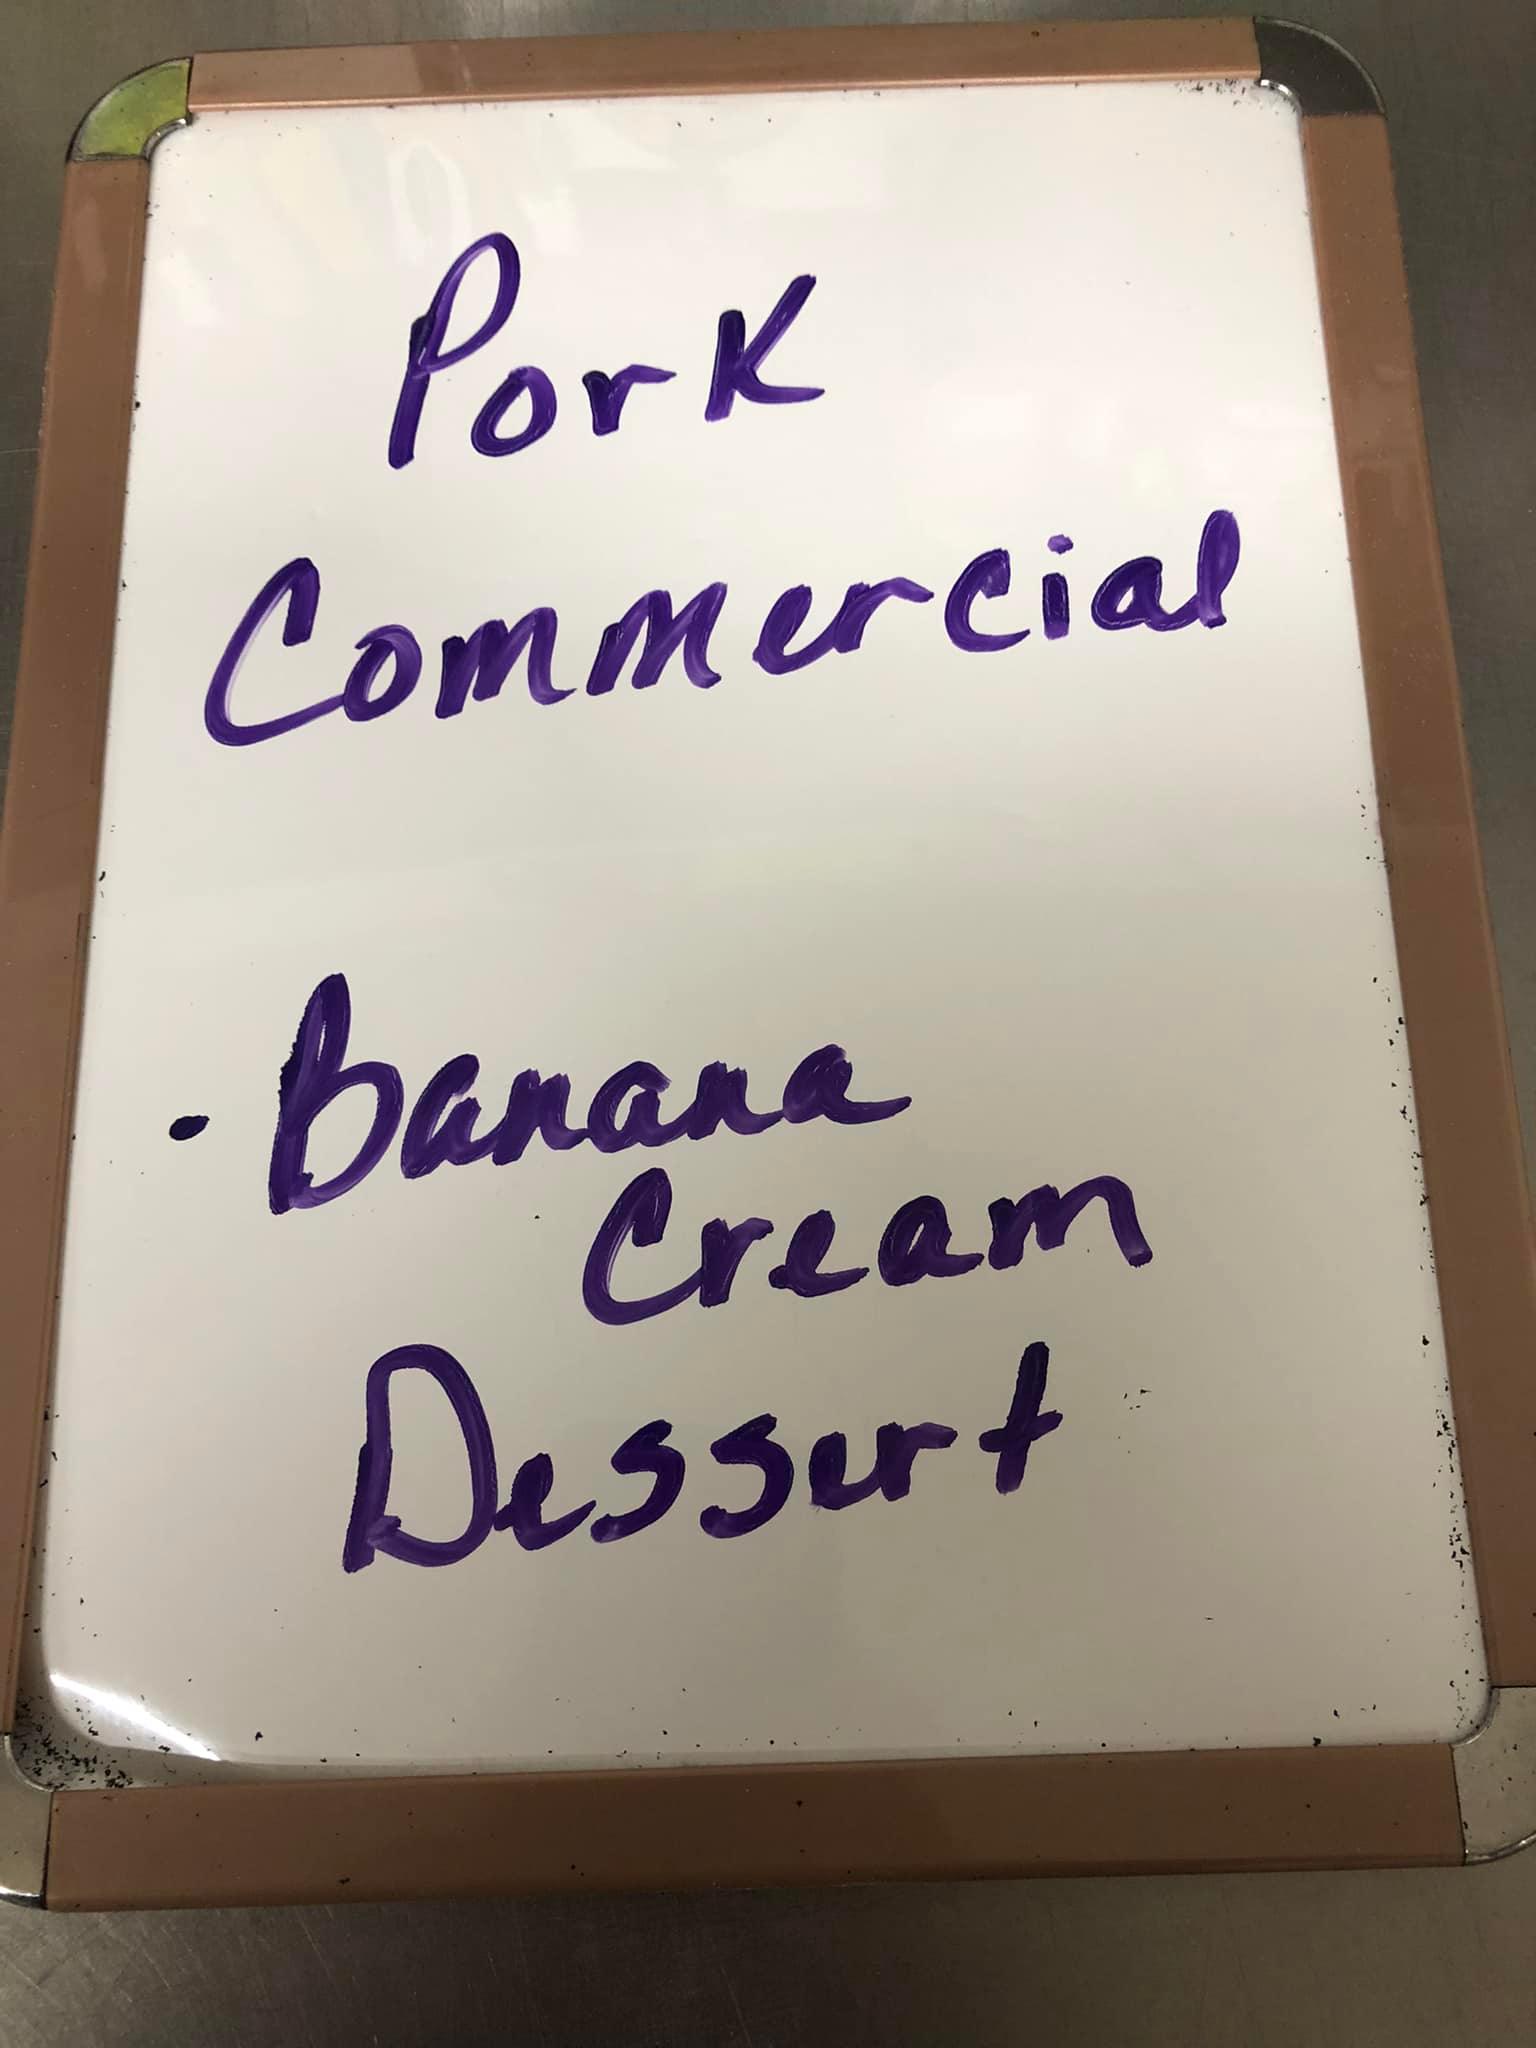 Pork
Commercial
• Banana
Cream
Dessert